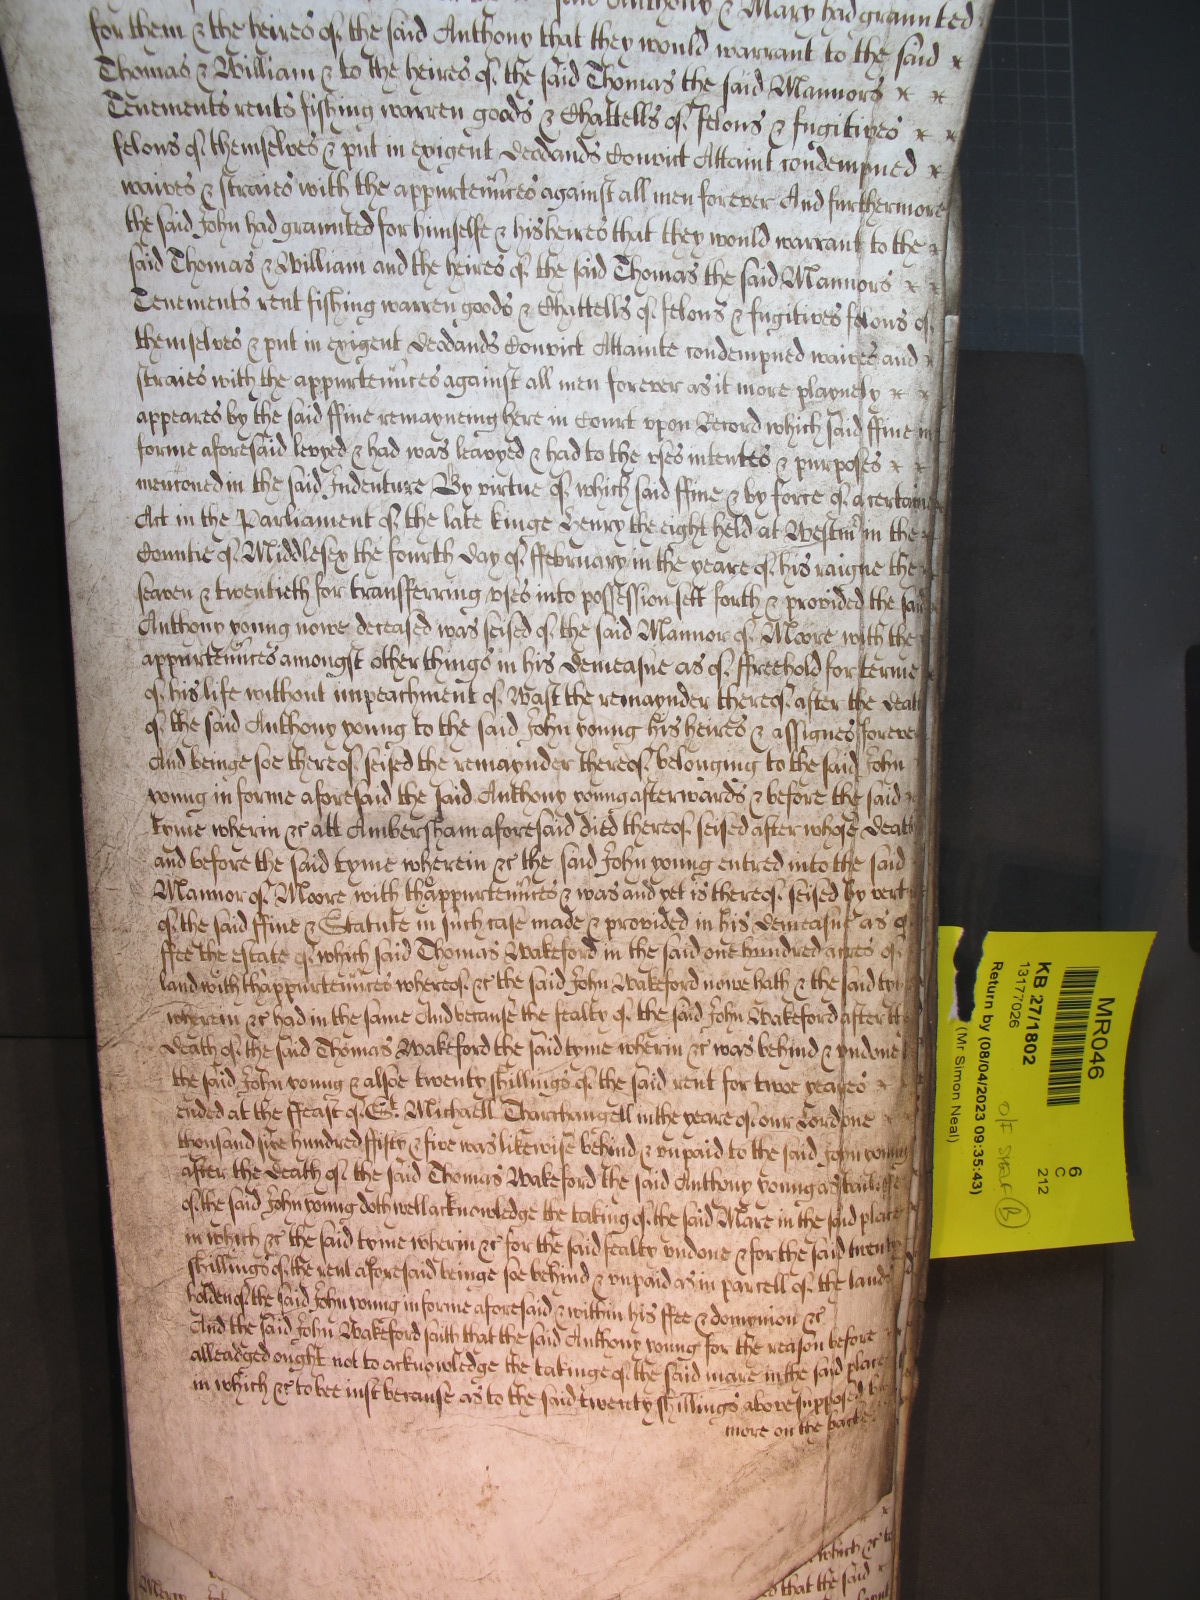 said Anthony & Mary had graunted
for them & the heires of the said Anthony that they would warrant to the said x
Thomas & William & to the heires of the said Thomas the said Mannors x x
Tenements rents fishing warren goods & Chattells of felons & fugitives x x
felons of themselves & put in exigent deodands Convict Attaint condempned x
waives & straies with the appurtenñces against all men forever And furthermore
the said John had graunted for himselfe & his heires that they would warrant to the x
said Thomas & William and the heires of the said Thomas the said Mannors x x
Tenements rent fishing warren goods & Chattells of felons & fugitives felons of
themselves & put in exigent deodands Convict Attainte condempned waives and x
straies with the appurtenñces against all men forever as it more playnely x x
appeares by the said ffine remayneing here in Court upon Record which said ffine in
forme aforesaid levyed & had was leavyed & had to the uses intentes & purposes x x
mencioned in the said Indenture By virtue of which said ffine & by force of a certaine
Act in the Parliament of the late kinge Henry the eight held at Westm̃ in the x
Countie of Middlesex the fourth day of ffebruary in the yeare of his raigne the
seaven & twentieth for transferring uses into possession sett forth & provided the said
Anthony young nowe deceased was seised of the said Mannor of Moore with the
appurtenñces amongst other things in his demeasne as of ffreehold for terme
of his life without impeachment of Wast the remaynder thereof after the death
of the said Anthony young to the said John young his heires & assignes forever
And beinge soe thereof seised the remaynder thereof belonging to the said John
young in forme aforesaid the said Anthony young afterwards & before the said x
tyme wherin &c att Ambersham aforesaid died thereof seised after whose death
and before the said tyme wherein &c the said John young entred into the said
Mannor of Moore with thappurtenñces & was and yet is thereof seised by vertue
of the said ffine & Statute in such case made & provided in his demeasne as of
ffee the estate of which said Thomas Wakeford in the said one hundred acres of
land with thappurtenñces whereof &c the said John Wakeford nowe hath & the said tyme
wherein &c had in the same And because the fealty of the said John Wakeford after the
death of the said Thomas Wakeford the said tyme wherin &c was behind & undone
the said John young & alsoe twenty shillings of the said rent for twoe yeares x
ended at the ffeast of St. Michaell Tharchangell in the yeare of our Lord one x
thousand sixe hundred ffifty & five was likewise behind & unpaid to the said John young
after the death of the said Thomas Wakeford the said Anthony young as bailiffe
of the said John young doth well acknowledge the taking of the said Mare in the said place
in which &c the said tyme wherin &c for the said fealty undone & for the said twenty
shillings of the rent aforesaid beinge soe behind & unpaid as in parcell of the lands
holden of the said John young in forme aforesaid & within his ffee & domynion &c
And the said John Wakeford saith that the said Anthony young for the reason before
alleadged ought not to acknowledge the takinge of the said mare in the said place
in which &c to bee iust because as to the said twenty shillings above supposed
more on the backe
which &c to
that the said
MR046
KB 27/1802
13177026
Return by (08/04/2023 09:35:43)
(Mr Simon Neal)
6
C
212